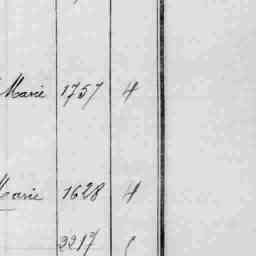 Marie 1757 4
Marie 1628 4
2217